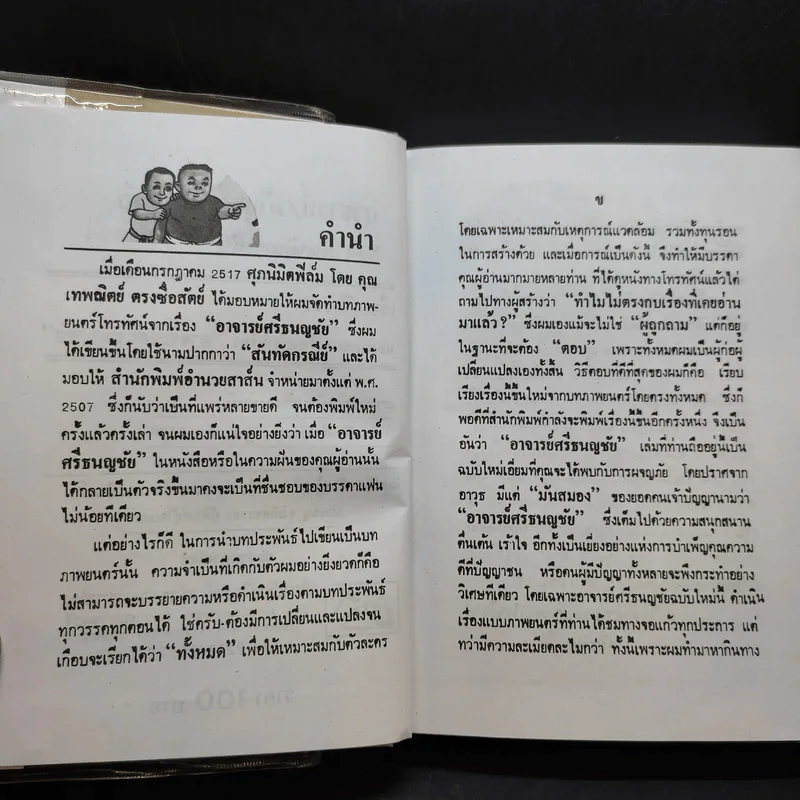 คำนำ
เมื่อเดือนกรกฎาคม 2517 ศุภนิมิตฟิล์ม โดย คุณ
เทพณิตย์ ตรงซื่อสัตย์ ได้มอบหมายให้ผมจัดทำบทภาพ-
ยนตร์โทรทัศน์จากเรื่อง “อาจารย์ศรีธนญชัย” ซึ่งผม
ได้เขียนขึ้นโดยใช้นามปากกาว่า “สันทัดกรณีย์” และได้
มอบให้ สำนักพิมพ์อำนวยสาส์น จำหน่ายมาตั้งแต่ พ.ศ.
2507 ซึ่งก็นับว่าเป็นที่แพร่หลายขายดี จนต้องพิมพ์ใหม่
ครั้งแล้วครั้งเล่า จนผมเองก็แน่ใจอย่างยิ่งว่า เมื่อ “อาจารย์
ศรีธนญชัย” ในหนังสือหรือในความฝันของคุณผู้อ่านนั้น
ได้กลายเป็นตัวจริงขึ้นมาคงจะเป็นที่ชื่นชอบของบรรดาแฟน
ไม่น้อยทีเดียว
แต่อย่างไรก็ดี ในการนำบทประพันธ์ไปเขียนเป็นบท
ภาพยนตร์นั้น ความจำเป็นที่เกิดกับตัวผมอย่างยิ่งยวดก็คือ
ไม่สามารถจะบรรยายความหรือดำเนินเรื่องตามบทประพันธ์
ทุกวรรคทุกตอนได้ ใช่ครับ-ต้องมีการเปลี่ยนและแปลงจน
เกือบจะเรียกได้ว่า “ทั้งหมด” เพื่อให้เหมาะสมกับตัวละคร
ข
โดยเฉพาะเหมาะสมกับเหตุการณ์แวดล้อม รวมทั้งทุนรอน
ในการสร้างด้วย และเมื่อการณ์เป็นดังนี้ จึงทำให้มีบรรดา
คุณผู้อ่านมากมายหลายท่าน ที่ได้ดูหนังทางโทรทัศน์แล้วได้
ถามไปทางผู้สร้างว่า “ทำไมไม่ตรงกบเรื่องที่เคยอ่าน
มาแล้ว?” ซึ่งผมเองแม้จะไม่ใช่ “ผู้ถูกถาม” แต่ก็อยู่
ในฐานะที่จะต้อง “ตอบ” เพราะทั้งหมดผมเป็นผู้ก่อผู้
เปลี่ยนแปลงเองทั้งสิ้น วิธีตอบที่ดีที่สุดของผมก็คือ เรียบ
เรียงเรื่องนี้ขึ้นใหม่จากบทภาพยนตร์โดยตรงทั้งหมด ซึ่งก็
พอดีที่สำนักพิมพ์กำลังจะพิมพ์เรื่องนี้ขึ้นอีกครั้งหนึ่ง จึงเป็น
อันว่า “อาจารย์ศรีธนญชัย” เล่มที่ท่านถืออยู่นี้เป็น
ฉบับใหม่เอี่ยมที่คุณจะได้พบกับการผจญภัย โดยปราศจาก
อาวุธ มีแต่ “มันสมอง” ของยอดคนเจ้าปัญญานามว่า
“อาจารย์ศรีธนญชัย” ซึ่งเต็มไปด้วยความสนุกสนาน
ตื่นเต้น เร้าใจ อีกทั้งเป็นเยี่ยงอย่างแห่งการบำเพ็ญคุณความ
ดีที่ปัญญาชน หรือคนผู้มีปัญญาทั้งหลายจะพึงกระทำอย่าง
วิเศษทีเดียว โดยเฉพาะอาจารย์ศรีธนญชัยฉบับใหม่นี้ ดำเนิน
เรื่องแบบภาพยนตร์ที่ท่านได้ชมทางจอแก้วทุกประการ แต่
ทว่ามีความละเมียดละไมกว่า ทั้งนี้เพราะผมทำมาหากินทาง